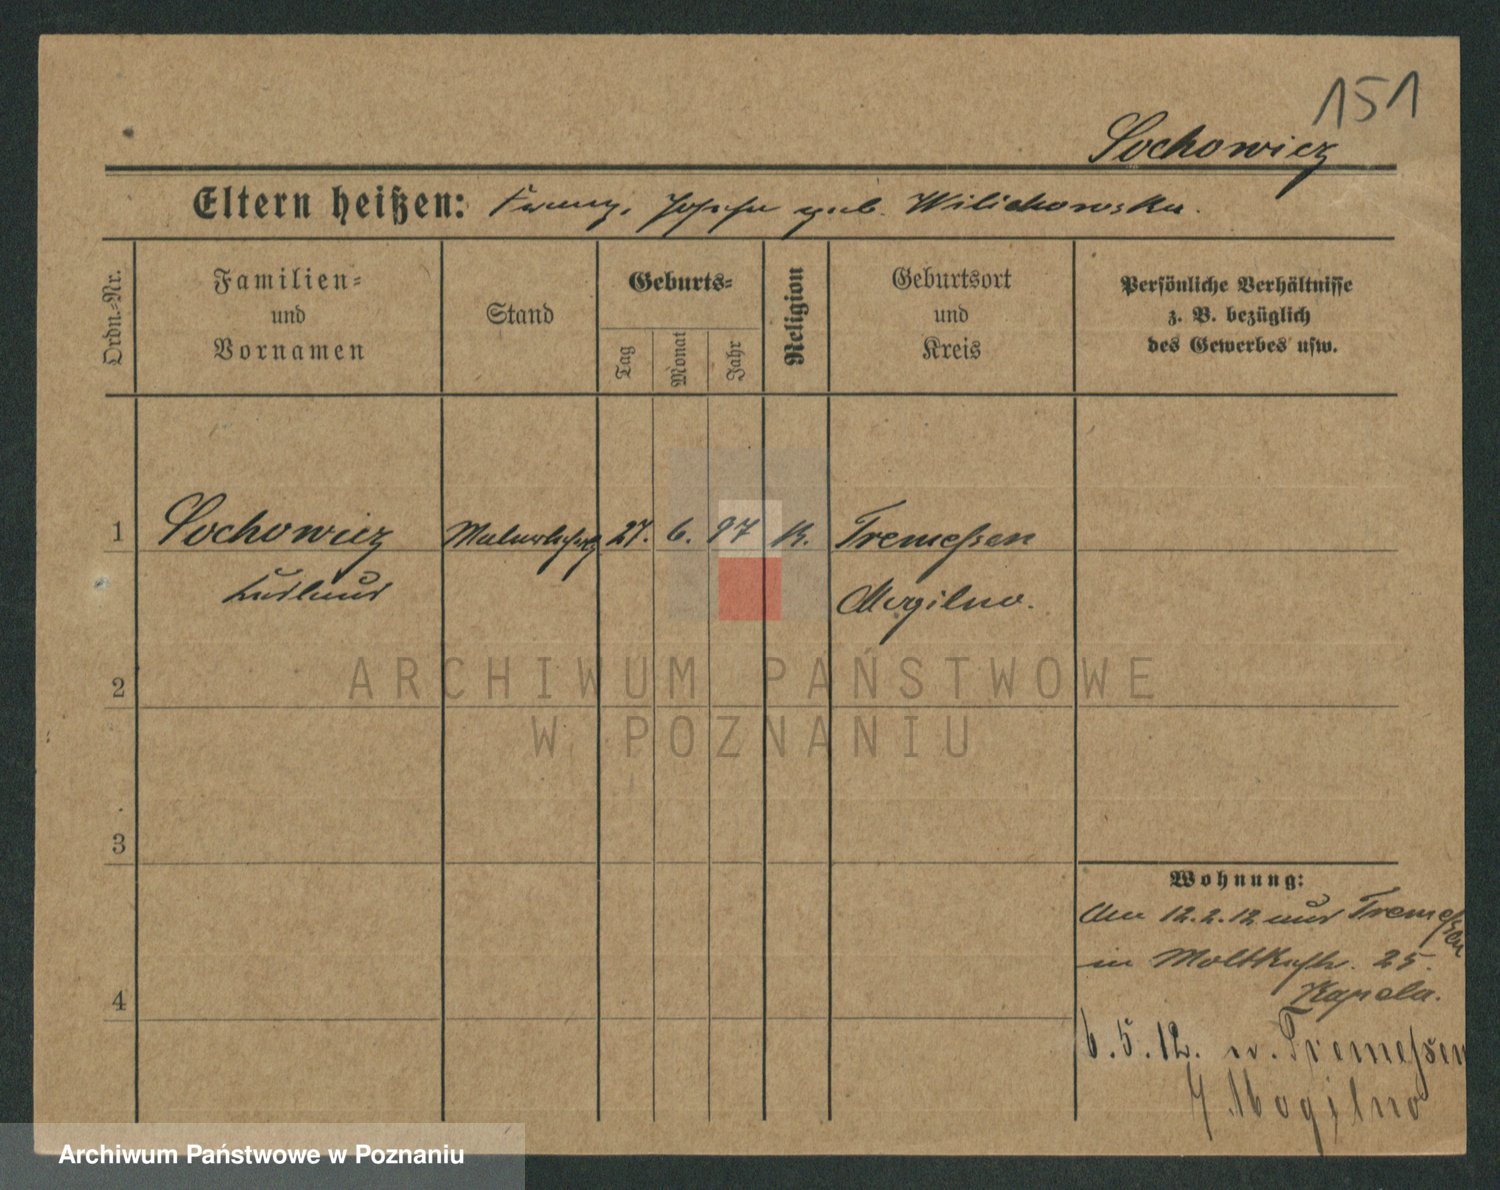 151
Sochowicz
Eltern heißen: Franz, Josefa geb. Wilichowska.
Ordn.-Nr.
Familien-
und
Vornamen
Stand
Geburts-
Tag
Monat
Jahr
Religion
Geburtsort
und
Kreis
Persönliche Verhältnisse
z. B. bezüglich
des Gewerbes usw.
1 Sochowicz Malerlehrlg 27. 6. 97 K. Tremessen
Mogilno.
2
3
4
Wohnung:
Am 12.2.12 aus Tremessen
in Moltkestr. 25.
Kapela.
6.5.12. n. Tremessen
Mogilno
ARCHIWUM PAŃSTWOWE
W POZNANIU
Archiwum Państwowe w Poznaniu